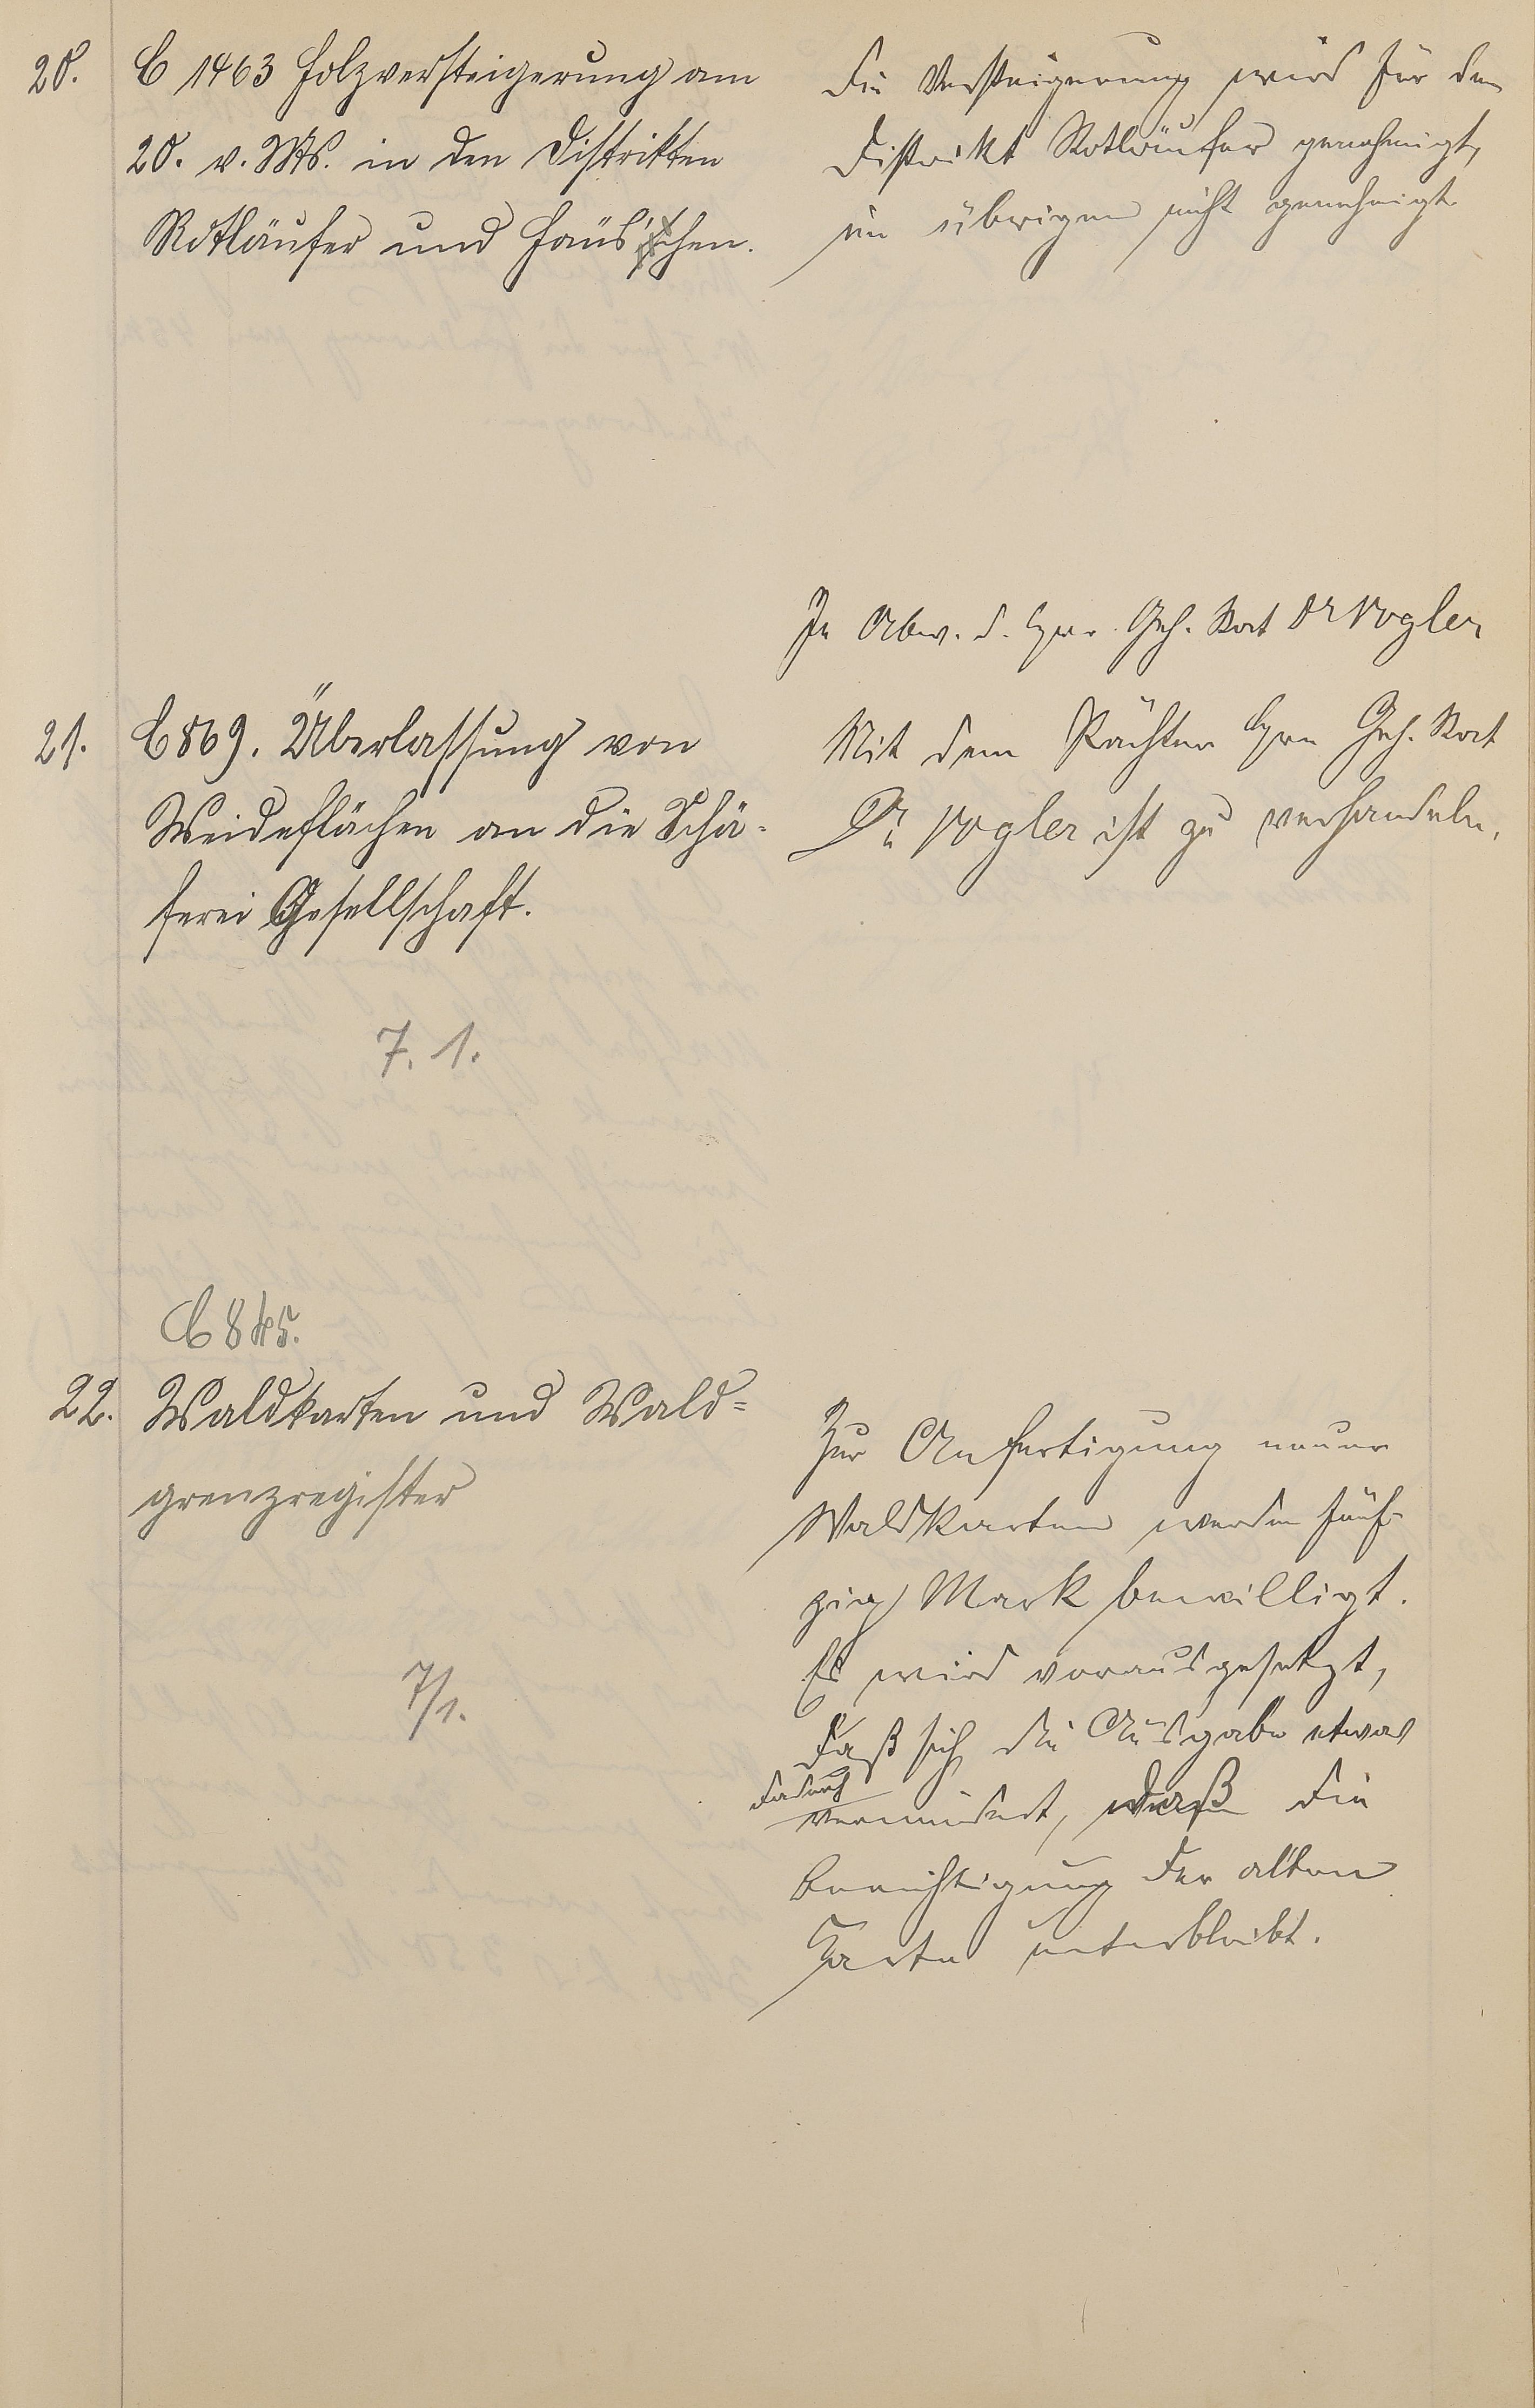 20.
C 1463 Holzversteigerung am
20. v. Mts. in den Distrikten
Rotläufer und Häuschen.
Die Versteigerung wird für den
Distrikt Rotläufer genehmigt,
im übrigen nicht genehmigt.
In Abw. d. Hrn. Geh. Rat Dr Vogler
21.
C 869. Überlassung von
Weideflächen an die Schä-
ferei Gesellschaft.
7. 1.
Mit dem Pächter Hrn Geh. Rat
Dr. Vogler ist zu verhandeln.
C 845.
22.
Waldkarten und Wald=
grenzregister
7/1.
Zur Anfertigung neuer
Waldkarten werden fünf-
zig Mark bewilligt.
Es wird vorausgesetzt,
daß sich die Ausgabe etwas
dadurch
vermindert, daß die
Berichtigung der alten
Karte unterbleibt.